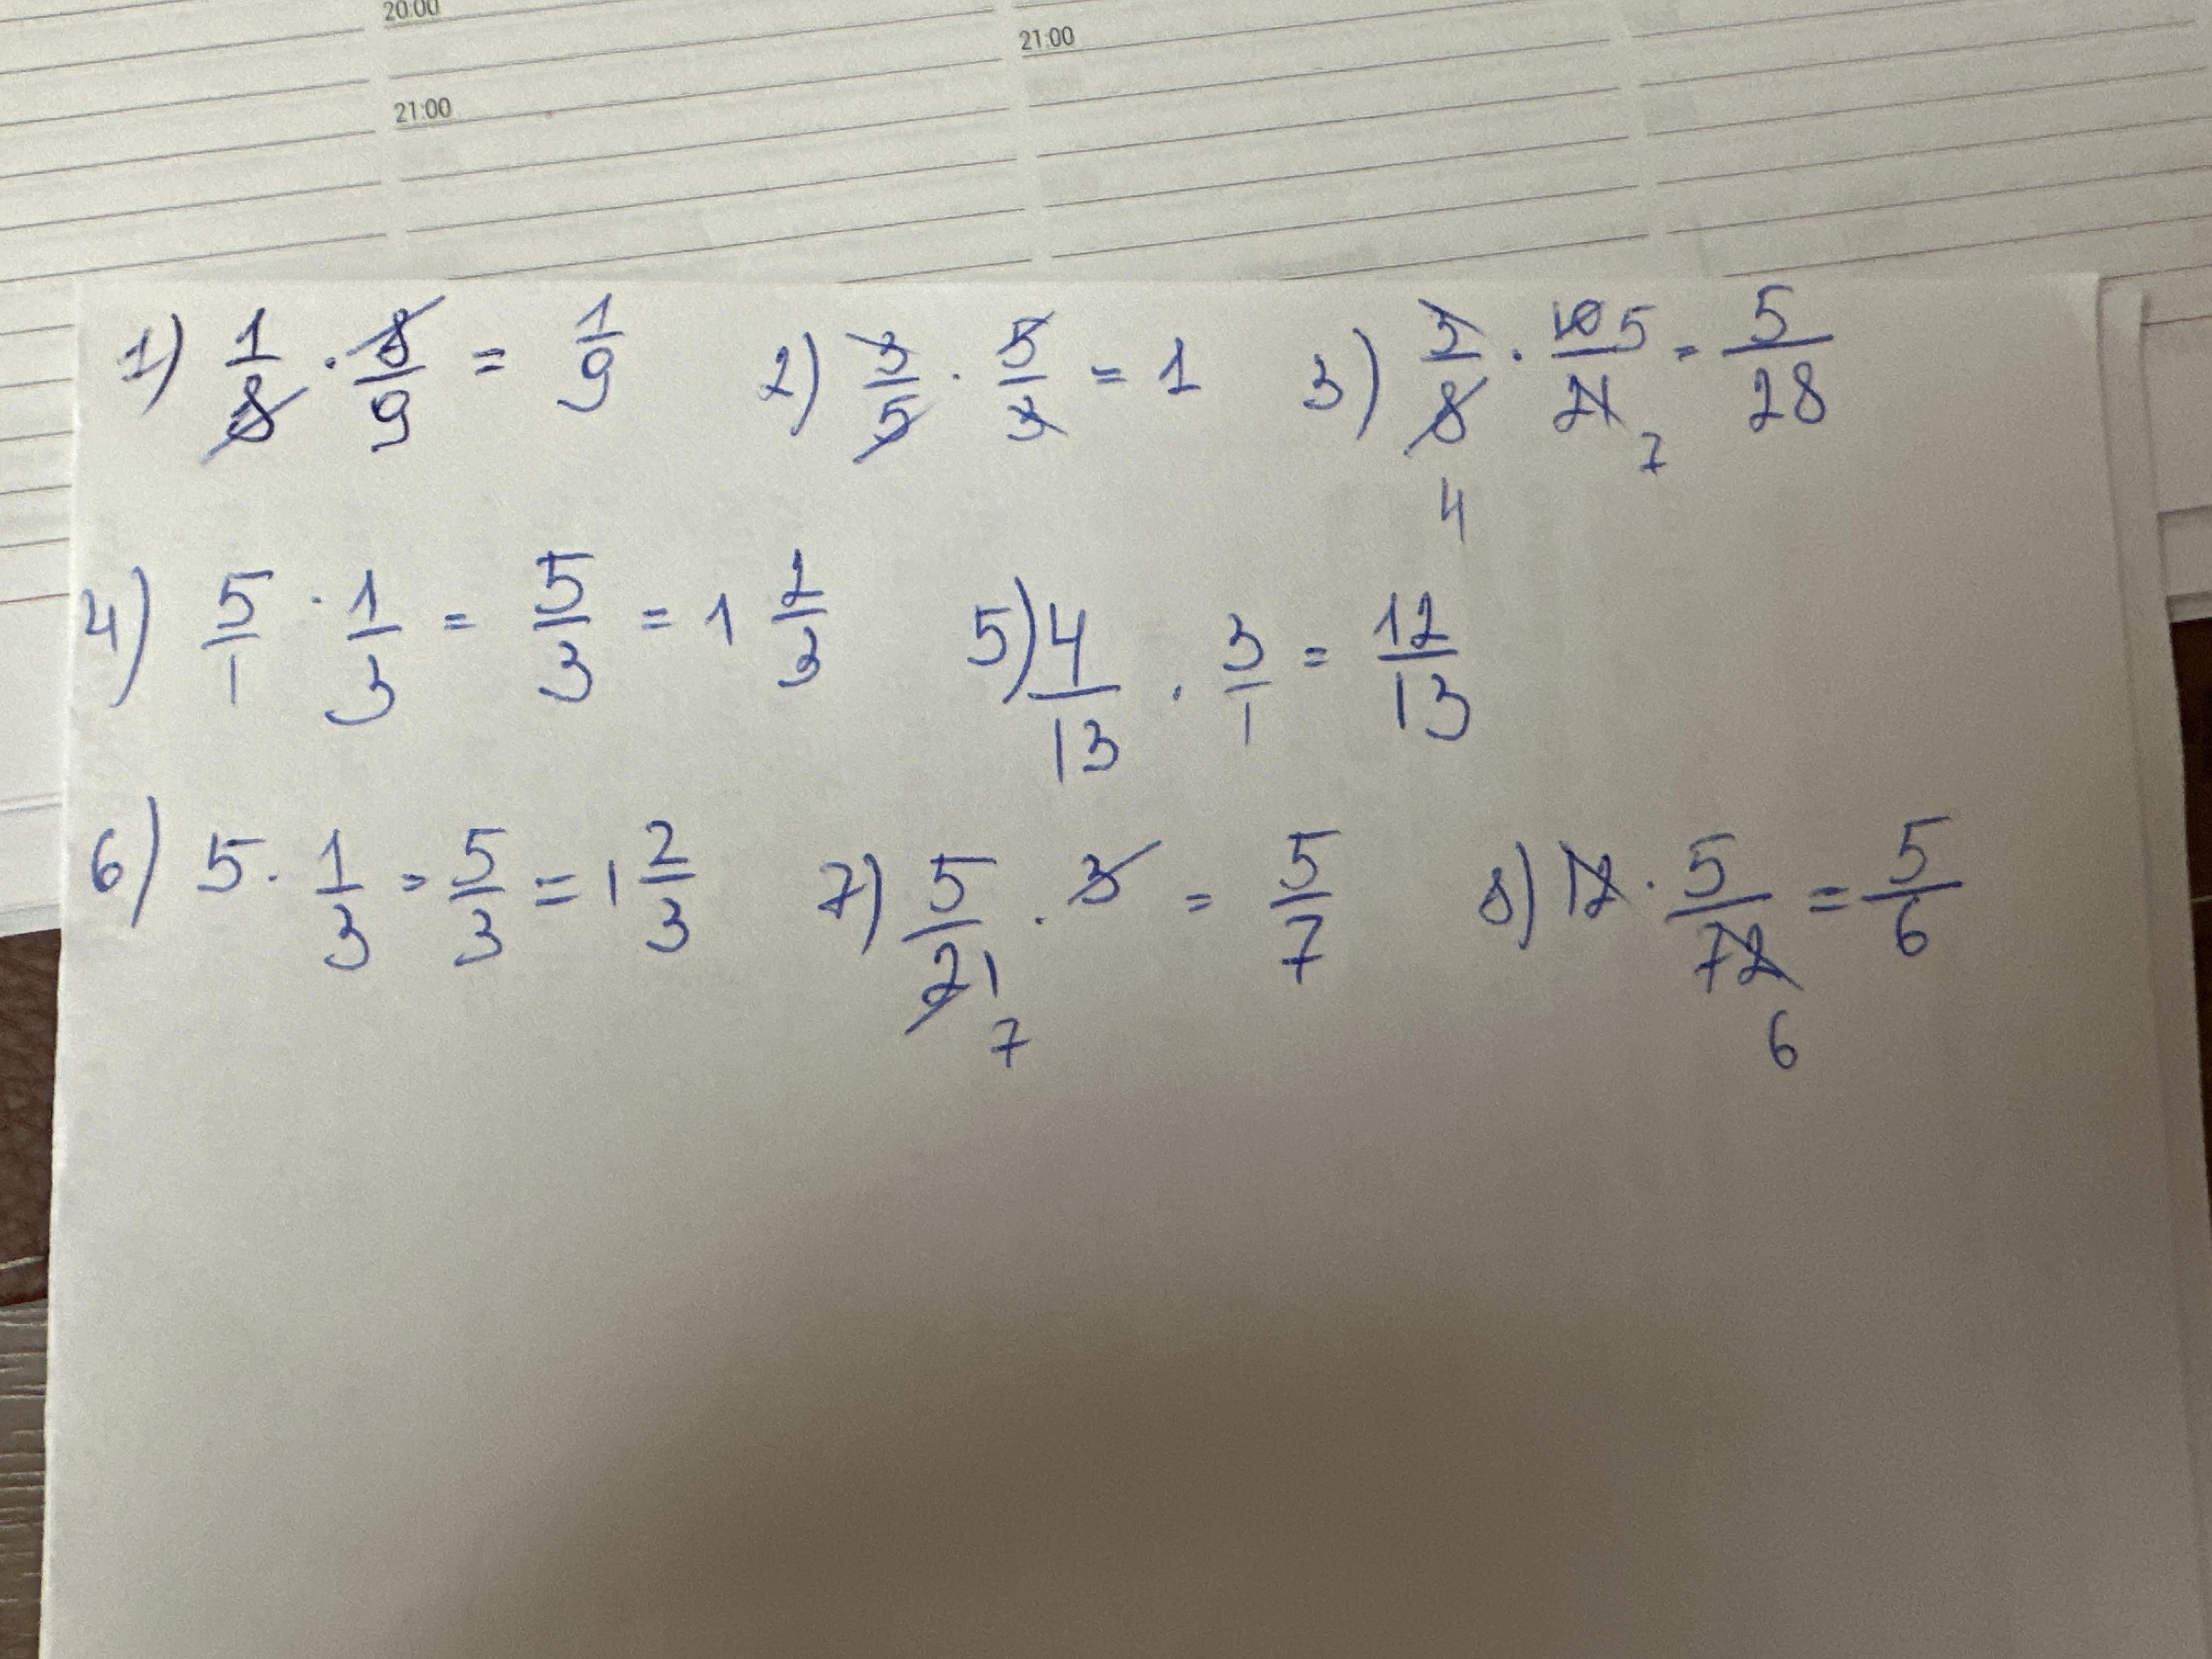 20:00
21:00
21:00
1) 1/8 · 8/9 = 1/9 2) 3/5 · 5/3 = 1 3) 3/8 4 · 10 5/21 7 = 5/28
4) 5/1 · 1/3 = 5/3 = 1 2/3 5) 4/13 · 3/1 = 12/13
6) 5 · 1/3 = 5/3 = 1 2/3 7) 5/21 7 · 3 = 5/7 8) 12 · 5/72 6 = 5/6